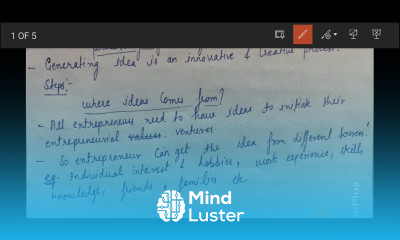 1 OF 5
- Generating idea is an innovative & creative process.
Steps:-
where ideas comes from?
- All entrepreneurs need to have ideas to initiate their
entrepreneurial values. ventures.
- So entrepreneur can get the idea from different sources.
eg. Individual interest & hobbies, work experience, skills
knowledge, friends, families etc
Mind
Luster